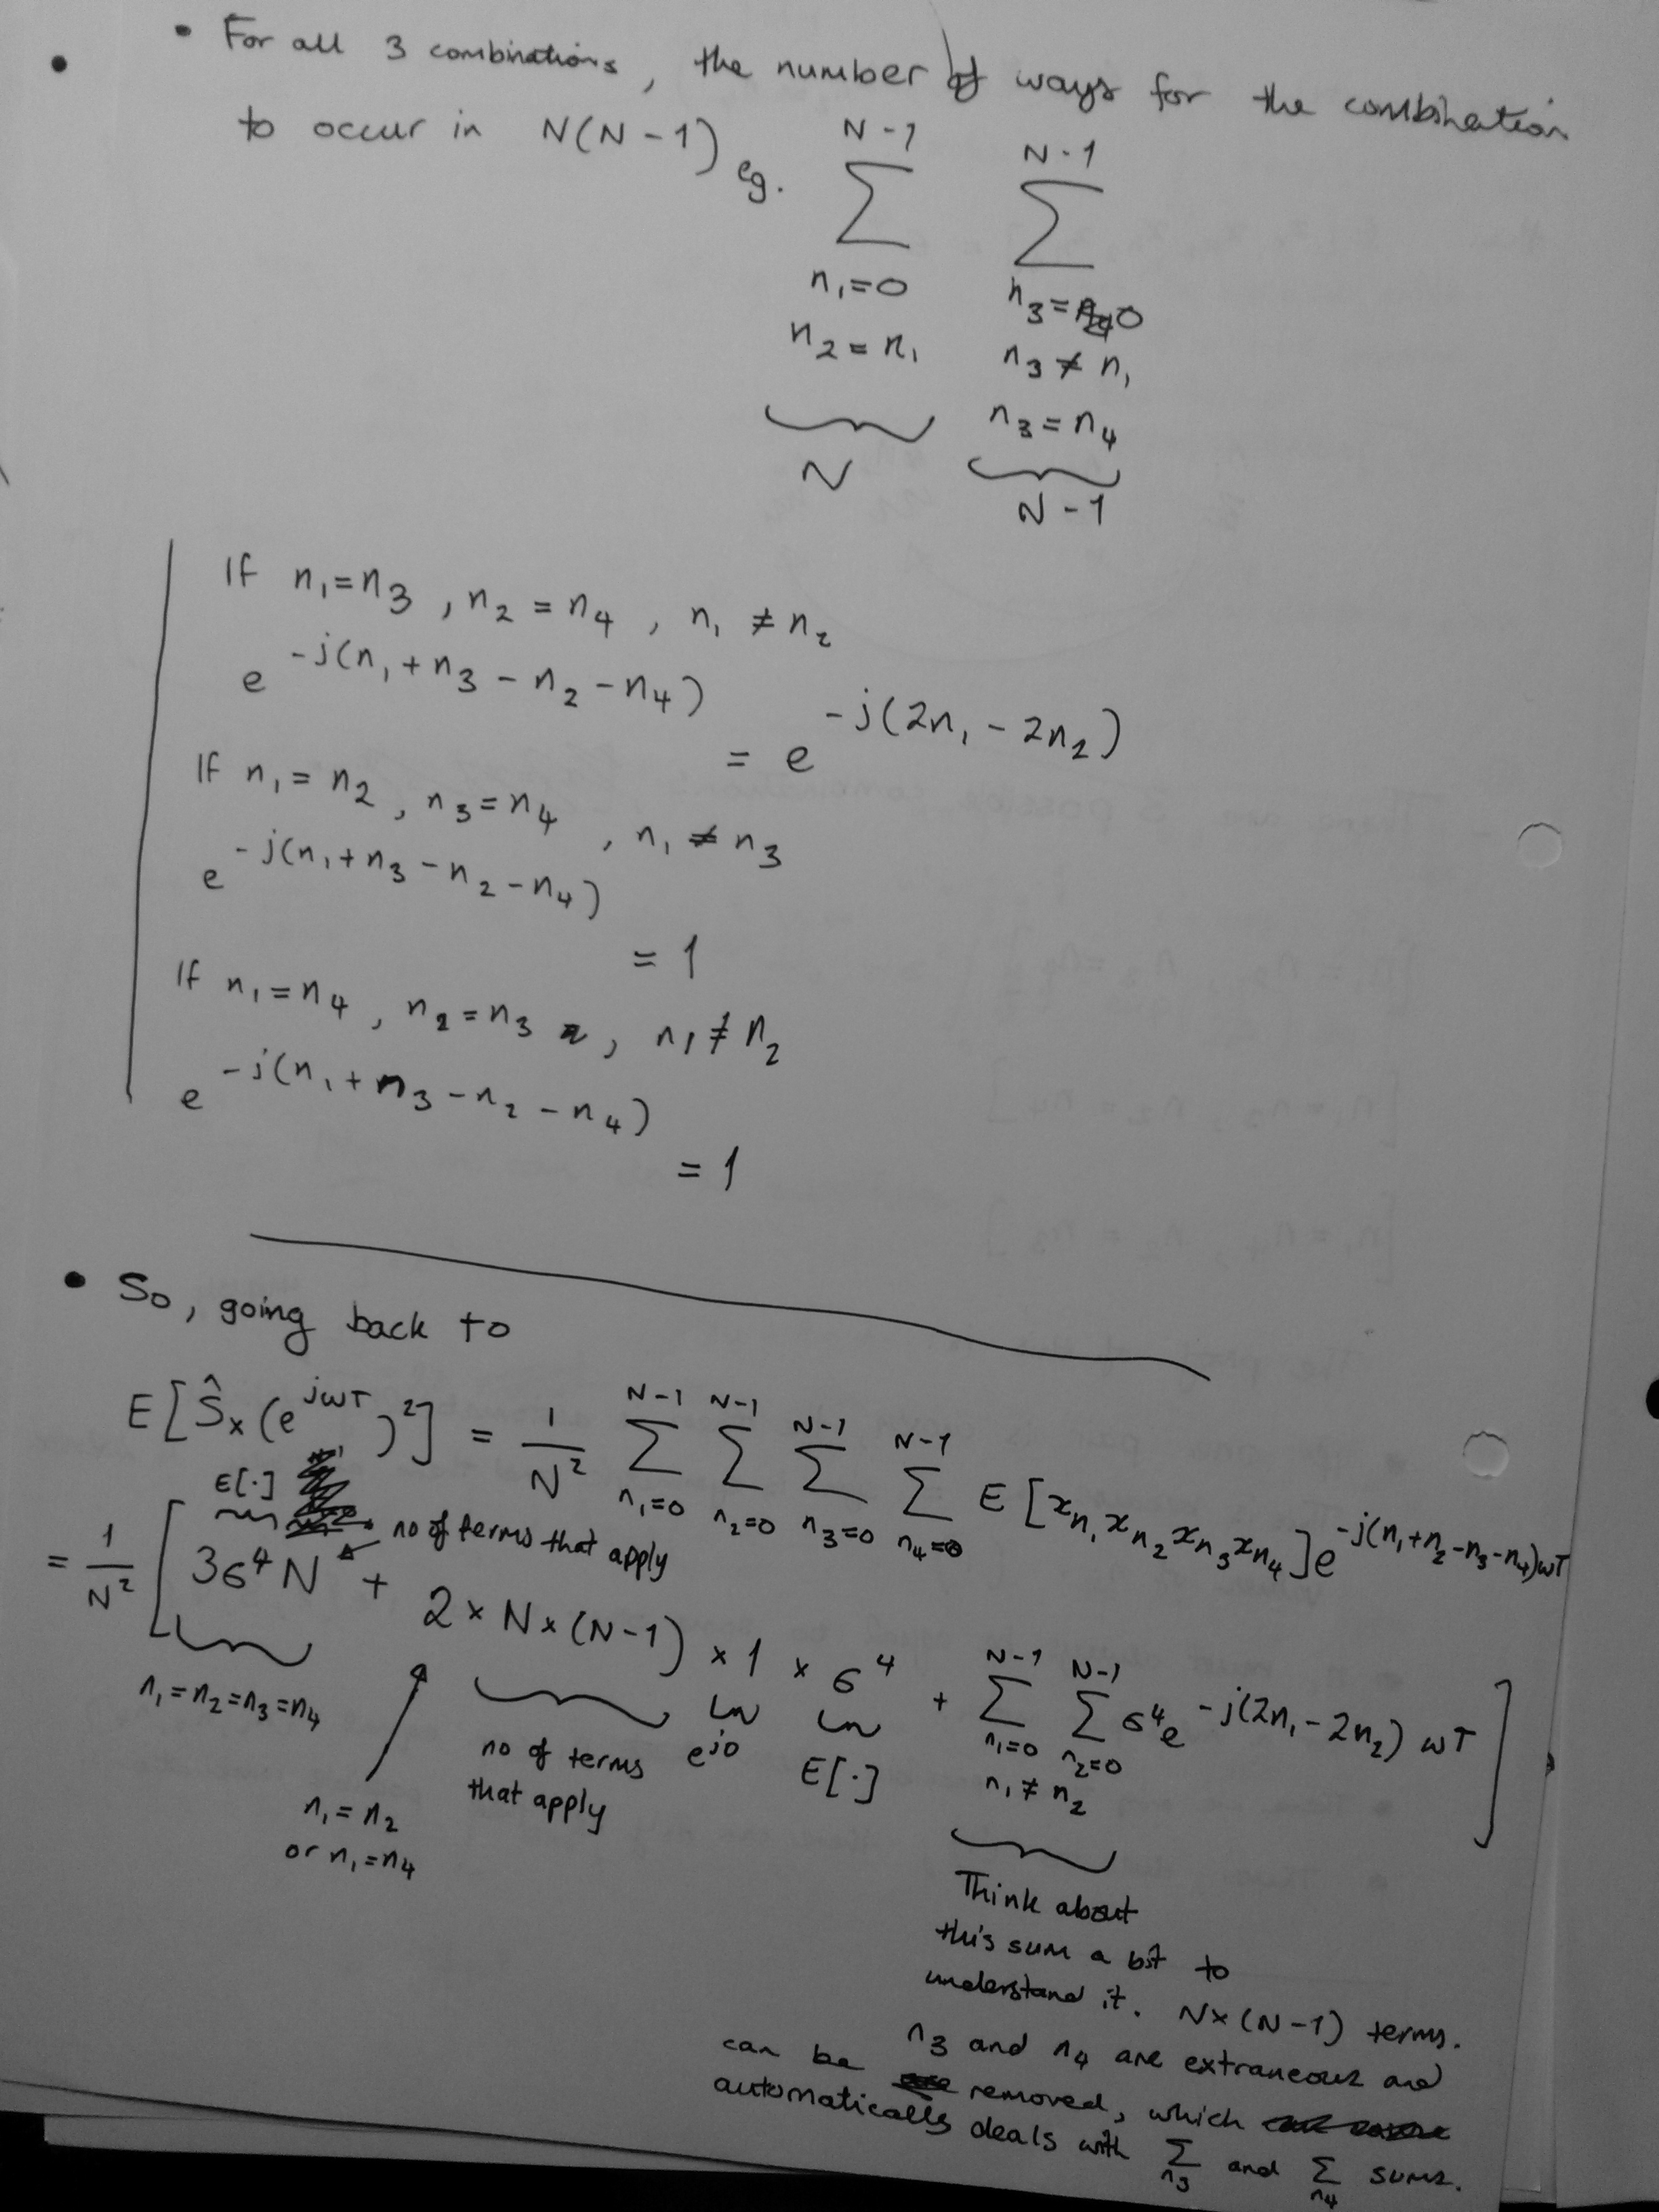 • For all 3 combinations, the number of ways for the combination
to occur in N(N-1) eg.
N-1 N-1
Σ Σ
n₁=0 n₃=0
n₂=n₁ n₃≠n₁
n₃=n₄
N N-1
If n₁=n₃, n₂=n₄, n₁≠n₂
e^{-j(n₁+n₃-n₂-n₄)} = e^{-j(2n₁-2n₂)}
If n₁=n₂, n₃=n₄, n₁≠n₃
e^{-j(n₁+n₃-n₂-n₄)} = 1
If n₁=n₄, n₂=n₃, n₁≠n₂
e^{-j(n₁+n₃-n₂-n₄)} = 1
• So, going back to
E[Ŝₓ(e^{jωT})²] = 1/N² Σ_{n₁=0}^{N-1} Σ_{n₂=0}^{N-1} Σ_{n₃=0}^{N-1} Σ_{n₄=0}^{N-1} E[x_{n₁}x_{n₂}x_{n₃}x_{n₄}]e^{-j(n₁+n₂-n₃-n₄)ωT}
E[·] no of terms that apply
= 1/N² [3σ⁴N + 2×N×(N-1)×1×σ⁴ + Σ_{n₁=0}^{N-1} Σ_{n₂=0}^{N-1} σ⁴e^{-j(2n₁-2n₂)ωT}]
n₁≠n₂
n₁=n₂=n₃=n₄
n₁=n₂
or n₁=n₄
no of terms
that apply
e^{j0}
E[·]
Think about
this sum a bit to
understand it. N×(N-1) terms.
n₃ and n₄ are extraneous and
can be removed, which
automatically deals with Σ_{n₃} and Σ_{n₄} sums.